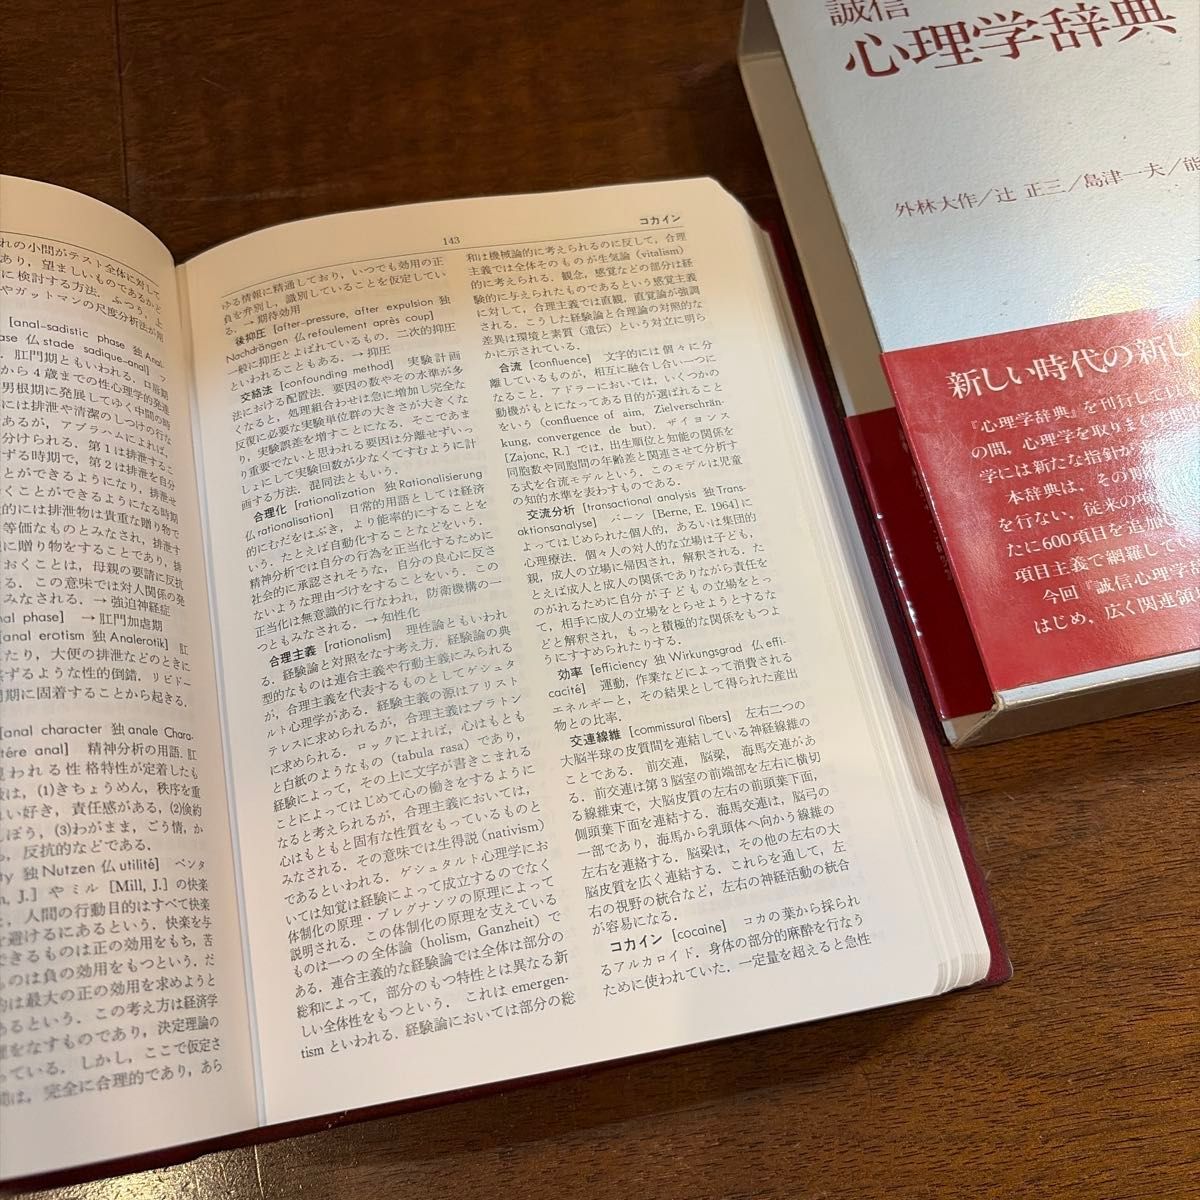 れの小問がテスト全体に対して
あり,望ましいものであるかど
に検討する方法.ふつう,上
やガットマンの尺度分析法が用
[anal-sadistic phase 独 Anal-
ase 仏 stade sadique-anal] フ
.肛門期ともいわれる.口唇期
から4歳までの性心理学的発達
男根期に発展してゆく中間の時
には排泄や清潔のしつけの行な
あるが,アブラハムによれば,
分けられる.第1は排泄するこ
ずる時期で,第2は排泄を自分
とができるようになり,排泄せ
くことができるようになる時期
的には排泄物は貴重な贈り物で
等価なものとみなされ,排泄す
に贈り物をすることであり,排
おくことは,母親の要請に反抗
る.この意味では対人関係の発
みなされる.→強迫神経症
nal phase] →肛門加虐期
[anal erotism 独 Analerotik] 肛
たり,大便の排泄などのときに
ずるような性的倒錯.リビドー
期に固着することから起きる.
[anal character 独 anale Chara-
tére anal] 精神分析の用語.肛
現われる性格特性が定着したも
徴は,(1)きちょうめん,秩序を重
い好き,責任感がある,(2)倹約
ぼう,(3)わがまま,ごう情,か
,反抗的などである.
ty 独 Nutzen 仏 utilité] ベンタ
, J.] やミル [Mill, J.] の快楽
,人間の行動目的はすべて快楽
避けるにあるという.快楽を与
できるものは正の効用をもち,苦
ものは負の効用をもつという.だ
的は最大の正の効用を求めようと
あるという.この考え方は経済学
をなすものであり,決定理論の
っている.しかし,ここで仮定さ
間は,完全に合理的であり,あら
143
コカイン
ゆる情報に精通しており,いつでも効用の正
負を弁別し,識別していることを仮定してい
る.→期待効用
後抑圧 [after-pressure, after expulsion 独
Nachdrängen 仏 refoulement après coup]
一般に抑圧とよばれているもの.二次的抑圧
といわれることもある.→抑圧
交絡法 [confounding method] 実験計画
法における配置法.要因の数やその水準が多
くなると,処理組合わせは急に増加し完全な
反復に必要な実験単位群の大きさが大きくな
り,実験誤差を増すことになる.そこであま
り重要でないと思われる要因は分離せずいっ
しょにして実験回数が少なくてすむように計
画する方法.混同法ともいう.
合理化 [rationalization 独 Rationalisierung
仏 rationalisation] 日常的用語としては経済
的にむだをはぶき,より能率的にすることを
いう.たとえば自動化することなどをいう.
精神分析では自分の行為を正当化するために
社会的に承認されそうな,自分の良心に反さ
ないような理由づけをすることをいう.この
正当化は無意識的に行なわれ,防衛機構の一
つともみなされる.→知性化
合理主義 [rationalism] 理性論ともいわれ
る.経験論と対照をなす考え方.経験論の典
型的なものは連合主義や行動主義にみられる
が,合理主義を代表するものとしてゲシュタ
ルト心理学がある.経験主義の源はアリスト
テレスに求められるが,合理主義はプラトン
に求められる.ロックによれば,心はもとも
と白紙のようなもの (tabula rasa) であり,
経験によって,その上に文字が書きこまれる
ことによってはじめて心の働きをするように
なると考えられるが,合理主義においては,
心はもともと固有な性質をもっているものと
みなされる.その意味では生得説 (nativism)
であるといわれる.ゲシュタルト心理学にお
いては知覚は経験によって成立するのでなく
体制化の原理・プレグナンツの原理によって
説明される.この体制化の原理を支えている
ものは一つの全体論 (holism, Ganzheit) で
ある.連合主義的な経験論では全体は部分の
総和によって,部分のもつ特性とは異なる新
しい全体性をもつという.これは emergen-
tism といわれる.経験論においては部分の総
和は機械論的に考えられるのに反して,合理
主義では全体そのものが生気論 (vitalism)
的に考えられる.観念,感覚などの部分は経
験的に与えられたものであるという感覚主義
に対して,合理主義では直観,直覚論が強調
される.こうした経験論と合理論の対照的な
差異は環境と素質(遺伝)という対立に明ら
かに示されている.
合流 [confluence] 文字的には個々に分
離しているものが,相互に融合し合い一つに
なること.アドラーにおいては,いくつかの
動機がもとになってある目的が選ばれること
をいう (confluence of aim, Zielverschrän-
kung, convergence de but).ザイヨンス
[Zajonc, R.] では,出生順位と知能の関係を
同胞数や同胞間の年齢差と関連させて分析す
る式を合流モデルという.このモデルは児童
の知的水準を表わすものである.
交流分析 [transactional analysis 独 Trans-
aktionsanalyse] バーン [Berne, E. 1964] に
よってはじめられた個人的,あるいは集団的
心理療法.個々人の対人的な立場は子ども,
親,成人の立場に帰因され,解釈される.た
とえば成人と成人の関係でありながら責任を
のがれるために自分が子どもの立場をとっ
て,相手に成人の立場をとらせようとするな
どと解釈され,もっと積極的な関係をもつよ
うにすすめられたりする.
効率 [efficiency 独 Wirkungsgrad 仏 effi-
cacité] 運動,作業などによって消費される
エネルギーと,その結果として得られた産出
物との比率.
交連線維 [commissural fibers] 左右二つの
大脳半球の皮質間を連結している神経線維の
ことである.前交連,脳梁,海馬交連があ
る.前交連は第3脳室の前端部を左右に横切
る線維束で,大脳皮質の左右の前頭葉下面,
側頭葉下面を連結する.海馬交連は,脳弓の
一部であり,海馬から乳頭体へ向かう線維の
左右を連絡する.脳梁は,その他の左右の大
脳皮質を広く連結する.これらを通して,左
右の視野の統合など,左右の神経活動の統合
が容易になる.
コカイン [cocaine] コカの葉から採られ
るアルカロイド.身体の部分的麻酔を行なう
ために使われていた.一定量を超えると急性
誠信
心理学辞典
外林大作/辻 正三/島津一夫/能
新しい時代の新し
『心理学辞典』を刊行して以
の間,心理学を取りまく
学には新たな指針が
本辞典は,その
を行ない,従来の項
たに600項目を追加し
項目主義で網羅して
今回『誠信心理学辞
はじめ,広く関連領